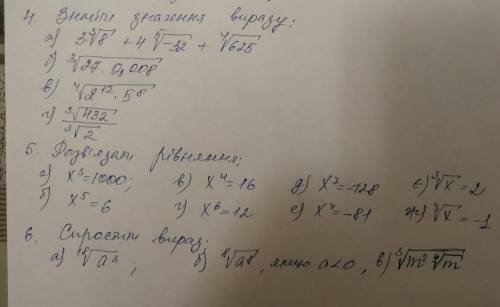 4. Знайти значення виразу:
а) 3·∛8 + 4 ⁵√-32 + ⁴√625
б) ∛27·0,008
в) ⁴√2¹²·5⁸
г) ∛432 / ∛2
5. Розв'язати рівняння:
а) x³=1000; в) x⁴=16 д) x⁷=-128 є) ∛x=2
б) x⁵=6 г) x⁶=12 е) x⁴=-81 ж) ⁴√x=-1
6. Спростити вираз:
а) ¹⁸√a³; б) ⁸√a⁸, якщо a<0, в) ∛m² ⁴√m